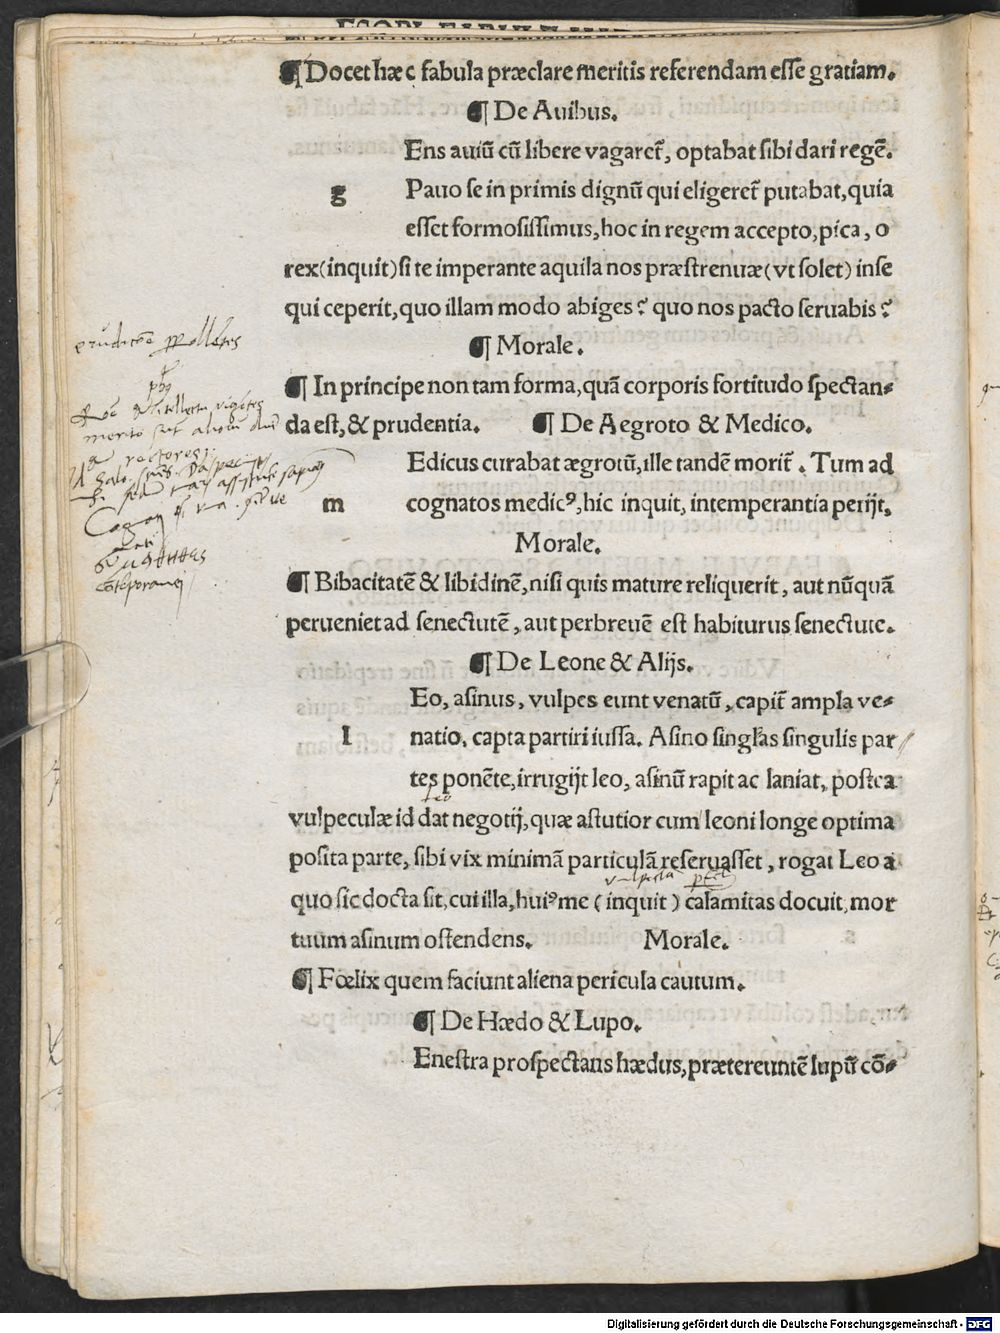 ¶ Docet hæc fabula præclare meritis referendam esse gratiam.
¶ De Auibus.
Ens auiũ cũ libere vagaret̃, optabat sibi dari regẽ.
g Pauo se in primis dignũ qui eligeret̃ putabat, quia
esset formosissimus, hoc in regem accepto, pica, o
rex (inquit) si te imperante aquila nos præstrenuæ (vt solet) inse
qui ceperit, quo illam modo abiges? quo nos pacto seruabis?
¶ Morale.
¶ In principe non tam forma, quã corporis fortitudo spectan-
da est, & prudentia. ¶ De Aegroto & Medico.
Edicus curabat ægrotũ, ille tandẽ morit̃. Tum ad
m cognatos medicꝰ, hic inquit, intemperantia perijt.
Morale.
¶ Bibacitatẽ & libidinẽ, nisi quis mature reliquerit, aut nũquã
perueniet ad senectutẽ, aut perbreuẽ est habiturus senectutẽ.
¶ De Leone & Alijs.
Eo, asinus, vulpes eunt venatũ, capit̃ ampla ve-
l natio, capta partiri iussa. Asino singl'as singulis par
tes ponẽte, irrugijt leo, asinũ rapit ac laniat, postea
leo
vulpeculæ id dat negotij, quæ astutior cum leoni longe optima
posita parte, sibi vix minimã particulã reseruasset, rogat Leo a
vulpecula
quo sic docta sit, cui illa, huiꝰ me (inquit) calamitas docuit, mor
tuum asinum ostendens. Morale.
¶ Fœlix quem faciunt aliena pericula cautum.
¶ De Hædo & Lupo.
Enestra prospectans hædus, prætereuntẽ lupũ cõ-
Digitalisierung gefördert durch die Deutsche Forschungsgemeinschaft - DFG